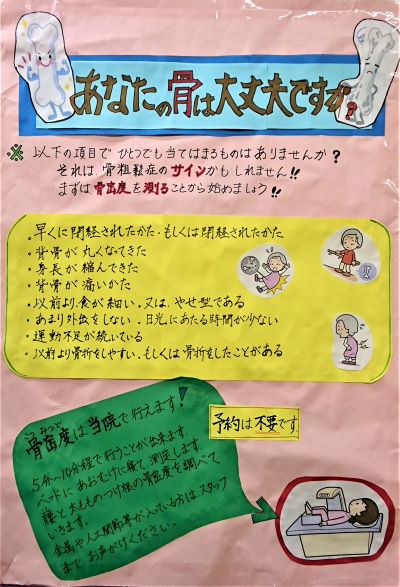 あなたの骨は大丈夫ですか?
※ 以下の項目で ひとつでも当てはまるものは ありませんか?
それは、骨粗鬆症の サインかも しれません!!
まずは 骨密度を 測る ことから始めましょう!!
・早くに閉経されたかた・もしくは閉経されたかた
・背骨が 丸くなってきた
・身長が 縮んできた
・背骨が 痛いかた
・以前より、食が細い、又は、やせ型である
・あまり外出をしない・日光にあたる時間が少ない
・運動不足が続いている
・以前より骨折をしやすい、もしくは骨折をしたことがある
こつみつど
骨密度は当院で行えます!
予約は不要です
5分~10分程で行うことが出来ます。
ベッドに あおむけに寝て、測定します。
腰と太ももつけ根の骨密度を調べて
いきます。
金属や人工関節等が入っている方は、スタッフ
まで お声がけください。